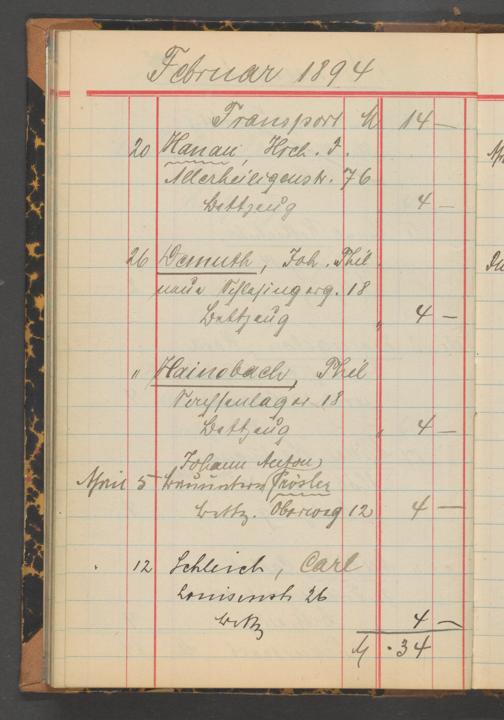 Februar 1894
Transport M 14 —
20 Hanau, Hch. J.
Allerheiligenstr. 76
Bettzeug 4 —
26 Demuth, Joh. Phil.
neue Schlesingerg. 18
Bettzeug " 4 —
" Hainebach, Phil
18
Bettzeug " 4 —
Johann Anton
April 5 Prösler
Bettz. Oberweg 12 4 —
12 Schleich, Carl
Louisenstr 26
Bettz 4 —
M 34